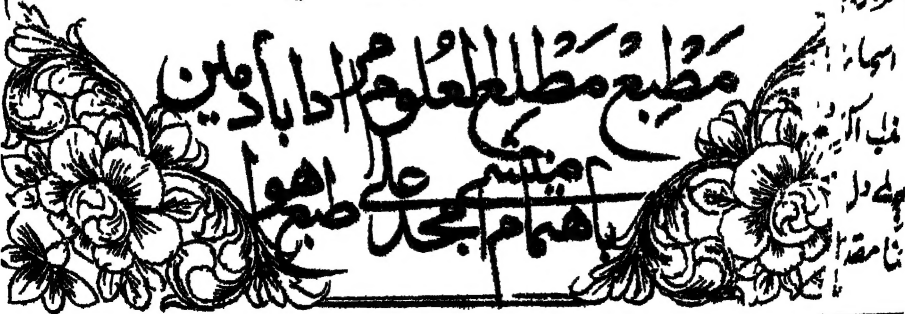 مطبع مطلع العلوم مراداباد مین
باهتمام منشی امجد علی طبع هوا